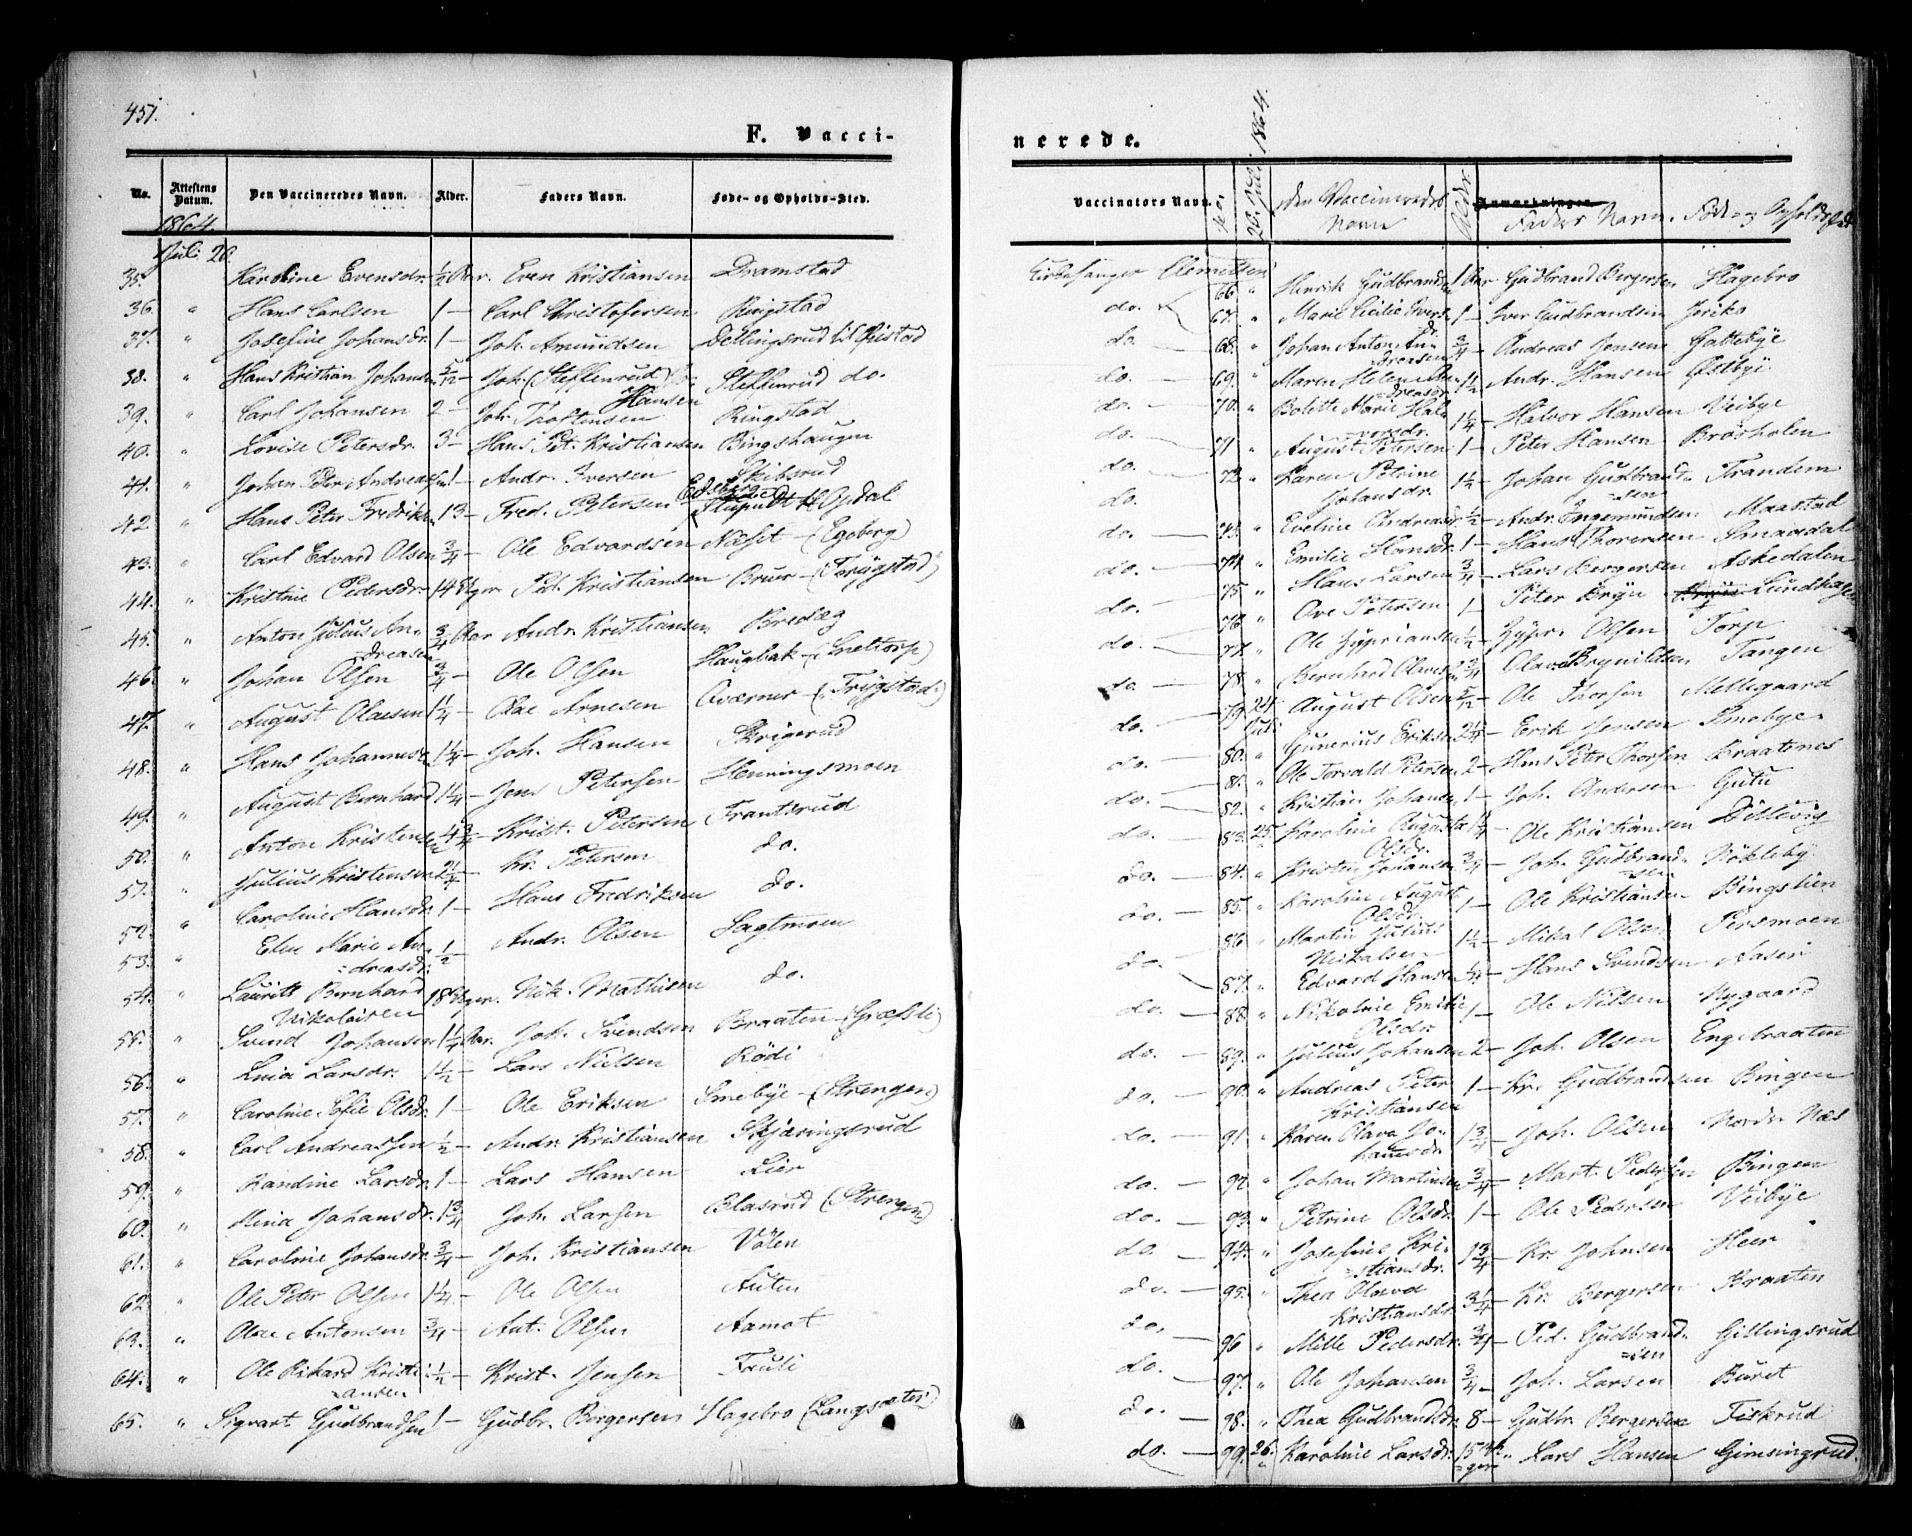 451.
F. Vacci-
No. Attestens Datum. Den Vaccineredes Navn. Alder. Faders Navn. Føde- og Opholds-Sted.
1864.
Juli 20
35. Karoline Evensdr. ½ Aar. Even Kristiansen Dramstad
36. " Hans Carlsen 1 — Carl Christofersen Ringstad
37. " Josefine Johansdr. 1 — Joh. Amundsen Dellingsrud til Ristad
38. " Hans Kristian Johansen 5/12 — Joh. (Steffenrud) Hansen Steffenrud do.
39. " Carl Johansen 2 — Joh. Thoftensen Ringstad
40. " Lovise Petersdr. 3 — Hans Pet. Kristiansen Bingshaugen
41. " Johan Peter Andreassen 1 — Andr. Iversen Skibsrud
42. " Hans Peter Fredriksen 13 — Fred. Petersen Edsberg Opdal
43. " Carl Edvard Olsen ¾ — Ole Edvardsen Næset — (Egeberg)
44. " Kristine Pedersdr. 14 Uger. Ped. Kristiansen Bruer — (Trygstad)
45. " Anton Julius An-
dreasen ¾ Aar Andr. Kristiansen Bredag
46. " Johan Olsen ¾ — Ole Olsen Haugbak — (Snetorp)
47. " August Olaesen 1¼ — Olae Arnesen Qværner — (Trygstad)
48. " Hans Johannesen 1¼ — Joh. Hansen Skrigerud
49. " August Bernhard 1¼ — Jens Petersen Henningsmoen
50. " Anton Kristensen 4¾ — Krist. Petersen Frantsrud
51. " Julius Kristensen 2¼ — Kr. Petersen do.
52. " Caroline Hansdr. 1 — Hans Fredriksen do.
53. " Elen Marie An-
dreasdr. ½ — Andr. Olsen Sagtmoen
54. " Lauritz Bernhard
Nikolaisen 18 Uger. Nik. Mathisen do.
55. " Svend Johansen 1¼ Aar. Joh. Svendsen Braaten — (Græsli)
56. " Lina Larsdr. 1½ — Lars Nielsen Rödi
57. " Caroline Sofie Olsdr. 1 — Ole Eriksen Smebye — (Strengen)
58. " Carl Andreassen ½ — Andr. Kristiansen Skjæringsrud
59. " Randine Larsdr. 1 — Lars Hansen Lier
60. " Mina Johansdr. 1¾ — Joh. Larsen Blasrud (Strengen)
61. " Caroline Johansdr. ¾ — Joh. Kristiansen Völen
62. " Ole Peter Olsen 1¼ — Ole Olsen Auten
63. " Olae Antonsen ¾ — Ant. Olsen Aamot
64. " Ole Rikard Kristi-
ansen ½ — Krist. Jensen Fruli
65. " Sigvart Gudbrandsen 1 — Gudbr. Bergersen Hagebro (Langsæter)
nerede.
Vaccinators Navn. No. 20. Juli 1864. den Vaccineredes Navn Alder. Anmærkninger. Faders Navn. Föde- og Opholdssted
Kirkesanger Clemetsen
66. " Henrik Gudbrandsen 1 Aar Gudbrand Bergersen Hagebro
do. 67. " Marie Cicilie Ivers-
dr. 1 — Iver Gudbrandsen Jeriko
do. 68. " Johan Anton An-
dreasen ¾ — Andreas Jensen Gottebye
do. 69. " Maren Helene An-
dreasdr. 1½ Andr. Hansen Østbye
do. 70. " Bolette Marie Hal-
vorsdr. 1¼ — Halvor Hansen Veibye
do. 71 " August Petersen 1 — Peter Hansen Brøsholen
do. 72. " Karen Petrine
Johansdr. 1½ — Johan Gudbrand-
sen Trandem
do. 73. " Eveline Andreasdr. ½ — Andr. Ingemundsen Maastad
do. 74. " Emilie Hansdr. 1 — Hans Thoresen Smaadal
do. 75. " Hans Larsen ¾ — Lars Bergersen Askedalen
do. 76. " Ove Petersen 1 — Peter Bryn Lundhagen
do. 77. " Ole Zyprianssen ½ — Zypr. Olsen Torp
do. 78. " Bernhard Olavesen ¾ — Olave Brynildsen Tangen
do. 79. 24. Juli August Olsen 5/12 — Ole Thorsen Mellegaard
do. 80. " Gunerius Eriksen 2¼ — Erik Jensen Smebye
do. 81. " Ole Torvald Petersen 2 — Hans Peter Thorsen Braatenes
do. 82. " Kristian Johansen 1 — Joh. Andersen Gutu
do. 83. 25. Karoline Augusta
Olsdr. 1¼ — Ole Kristiansen Dillevig
do. 84. " Kristen Johansen ¾ — Joh. Gudbrand-
sen Nökleby
do. 85. " Karoline August
Olsdr. 1 — Ole Kristiansen Bingslien
do. 86 " Martin Julius
Mikalsen 1½ — Mikal Olsen Persmoen
do. 87. " Edvard Hansen ¼ — Hans Svendsen Aaseri
do. 88. " Nikoline Emilie
Olsdr. 1 — Ole Nilsen Nygaard
do. 89. " Julius Johansen 2 — Joh. Olsen Engebraaten
do. 90. " Andreas Peter
Kristiansen 1 — Kr. Gudbrandsen Bingen
do. 91. " Karen Olava Jo-
hansdr. 1¾ — Joh. Olsen Nordre Næs
do. 92. " Johan Martinsen ¾ — Mart. Pedersen Bingen
do. 93. " Petrine Olsdr. 1 — Ole Pedersen Veibye
do. 94. " Josefine Kri-
stiansdr. 1¾ — Kr. Johnsen Heer
do. 95. " Thea Olava
Kristiansdr. 3¼ — Kr. Bergersen Braaten
do. 96 " Mille Pedersdr. ¾ — Ped. Gudbrand-
sen Gillingsrud
do. 97. " Ole Johansen ¾ — Joh. Larsen Buret
do. 98. " Thea Gudbrandsdr. 8 — Gudbr. Bergersen Fiskrud
do. 99. 26. Karoline Larsdr. 15 Uger " Lars Hansen Gimsingrud.